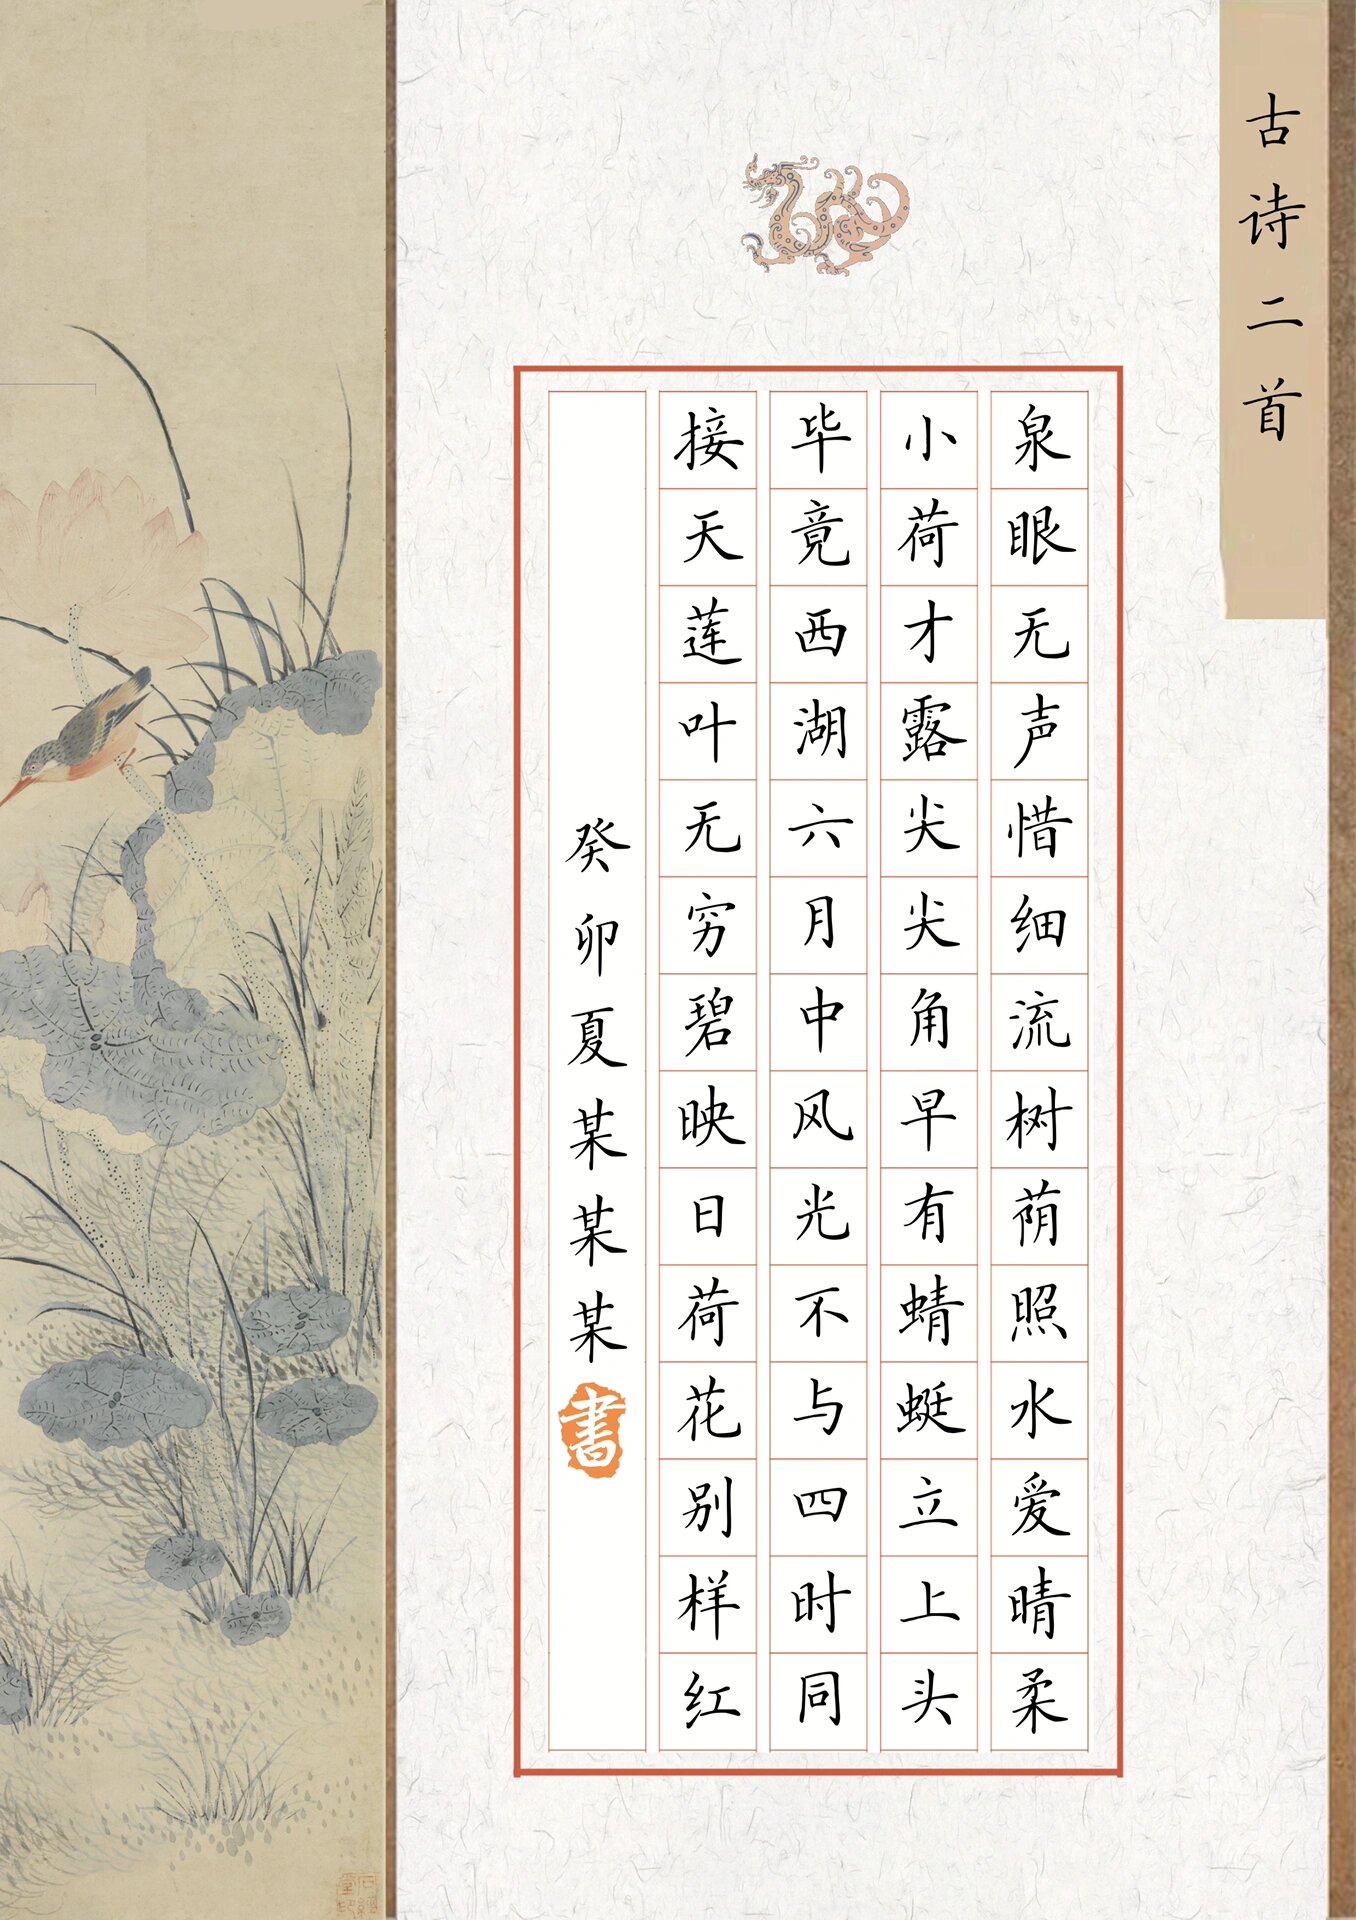 古诗二首
泉眼无声惜细流树荫照水爱晴柔
小荷才露尖尖角早有蜻蜓立上头
毕竟西湖六月中风光不与四时同
接天莲叶无穷碧映日荷花别样红
癸卯夏某某某書